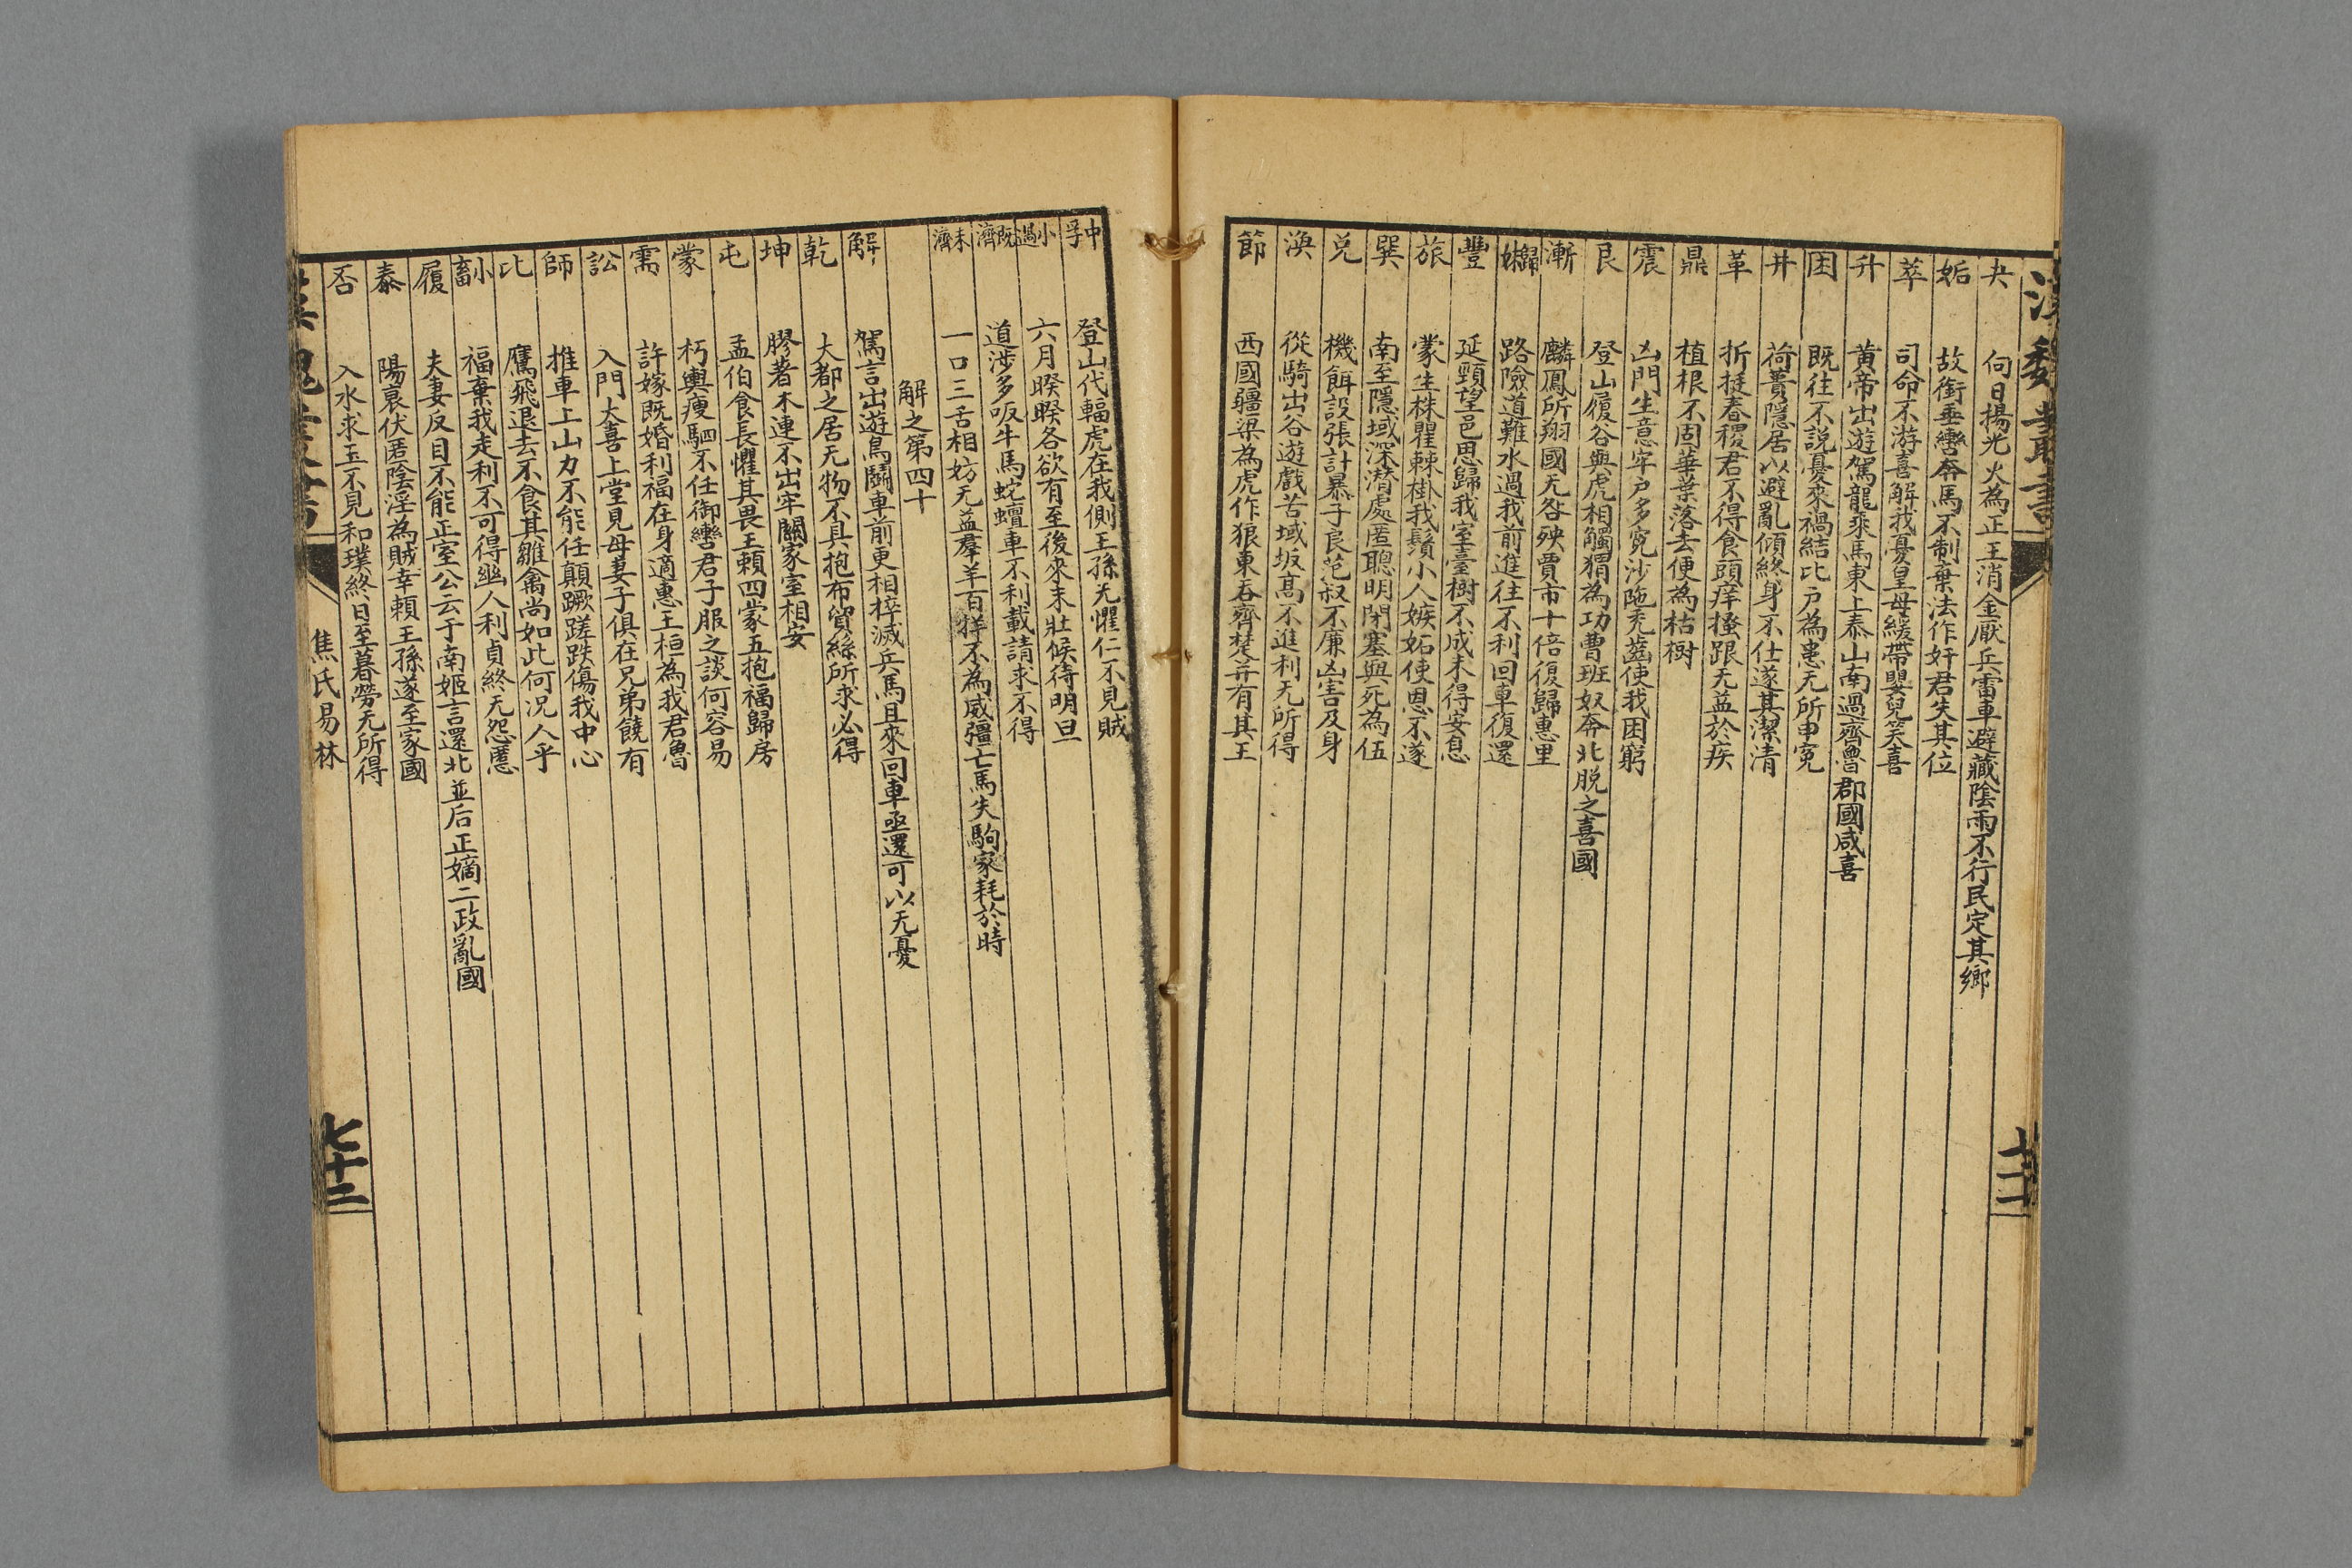 夬 向日揚光火為正王消金厭兵雷車避藏陰雨不行民定其鄉
姤 故銜垂轡奔馬不制棄法作奸君失其位
萃 司命不游喜解我憂皇母緩帶嬰兒笑喜
升 黃帝出遊駕龍乘馬東上泰山南過齊魯郡國咸喜
困 既往不說憂來禍結比戶為患无所申冤
井 荷蕢隱居以避亂傾終身不仕遂其潔清
革 折挺春稷君不得食頭痒搔跟无益於疾
鼎 植根不固華葉落去便為枯樹
震 凶門生意牢戶多冤沙陁禿齒使我困窮
艮 登山履谷與虎相觸猬為功曹班奴奔北脫之喜國
漸 麟鳳所翔國无咎殃賈市十倍復歸惠里
歸妹 路險道難水遏我前進往不利回車復還
豐 延頸望邑思歸我室臺樹不成未得安息
旅 蒙生株瞿棘掛我鬚小人嫉妬使恩不遂
巽 南至隱域深潛處匿聰明閉塞與死為伍
兌 機餌設張計暴子良范叔不廉凶害及身
渙 從騎出谷遊戲苦域坂高不進利无所得
節 西國疆梁為虎作狼東吞齊楚并有其王
中孚 登山代輻虎在我側王孫无懼仁不見賊
小過 六月睽睽各欲有至後來未壯候待明旦
既濟 道涉多叛牛馬蛇蟺車不利載請求不得
未濟 一口三舌相妨无益羣羊百牂不為威彊亡馬失駒家耗於時
解之第四十
解 駕言出遊鳥鬬車前更相捽滅兵馬且來回車亟還可以无憂
乾 大都之居无物不具抱布貿絲所求必得
坤 膠著木連不出牢關家室相安
屯 孟伯食長懼其畏王賴四蒙五抱福歸房
蒙 朽輿瘦駟不任御轡君子服之談何容易
需 許嫁既婚利福在身適惠王桓為我君魯
訟 入門大喜上堂見母妻子俱在兄弟饒有
師 推車上山力不能任顛蹶蹉跌傷我中心
比 鷹飛退去不食其雛禽尚如此何況人乎
小畜 福棄我走利不可得幽人利貞終无怨慝
履 夫妻反目不能正室公云于南姬言還北並后正嫡二政亂國
泰 陽衰伏匿陰淫為賊幸賴王孫遂至家國
否 入水求玉不見和璞終日至暮勞无所得
焦氏易林
七十二